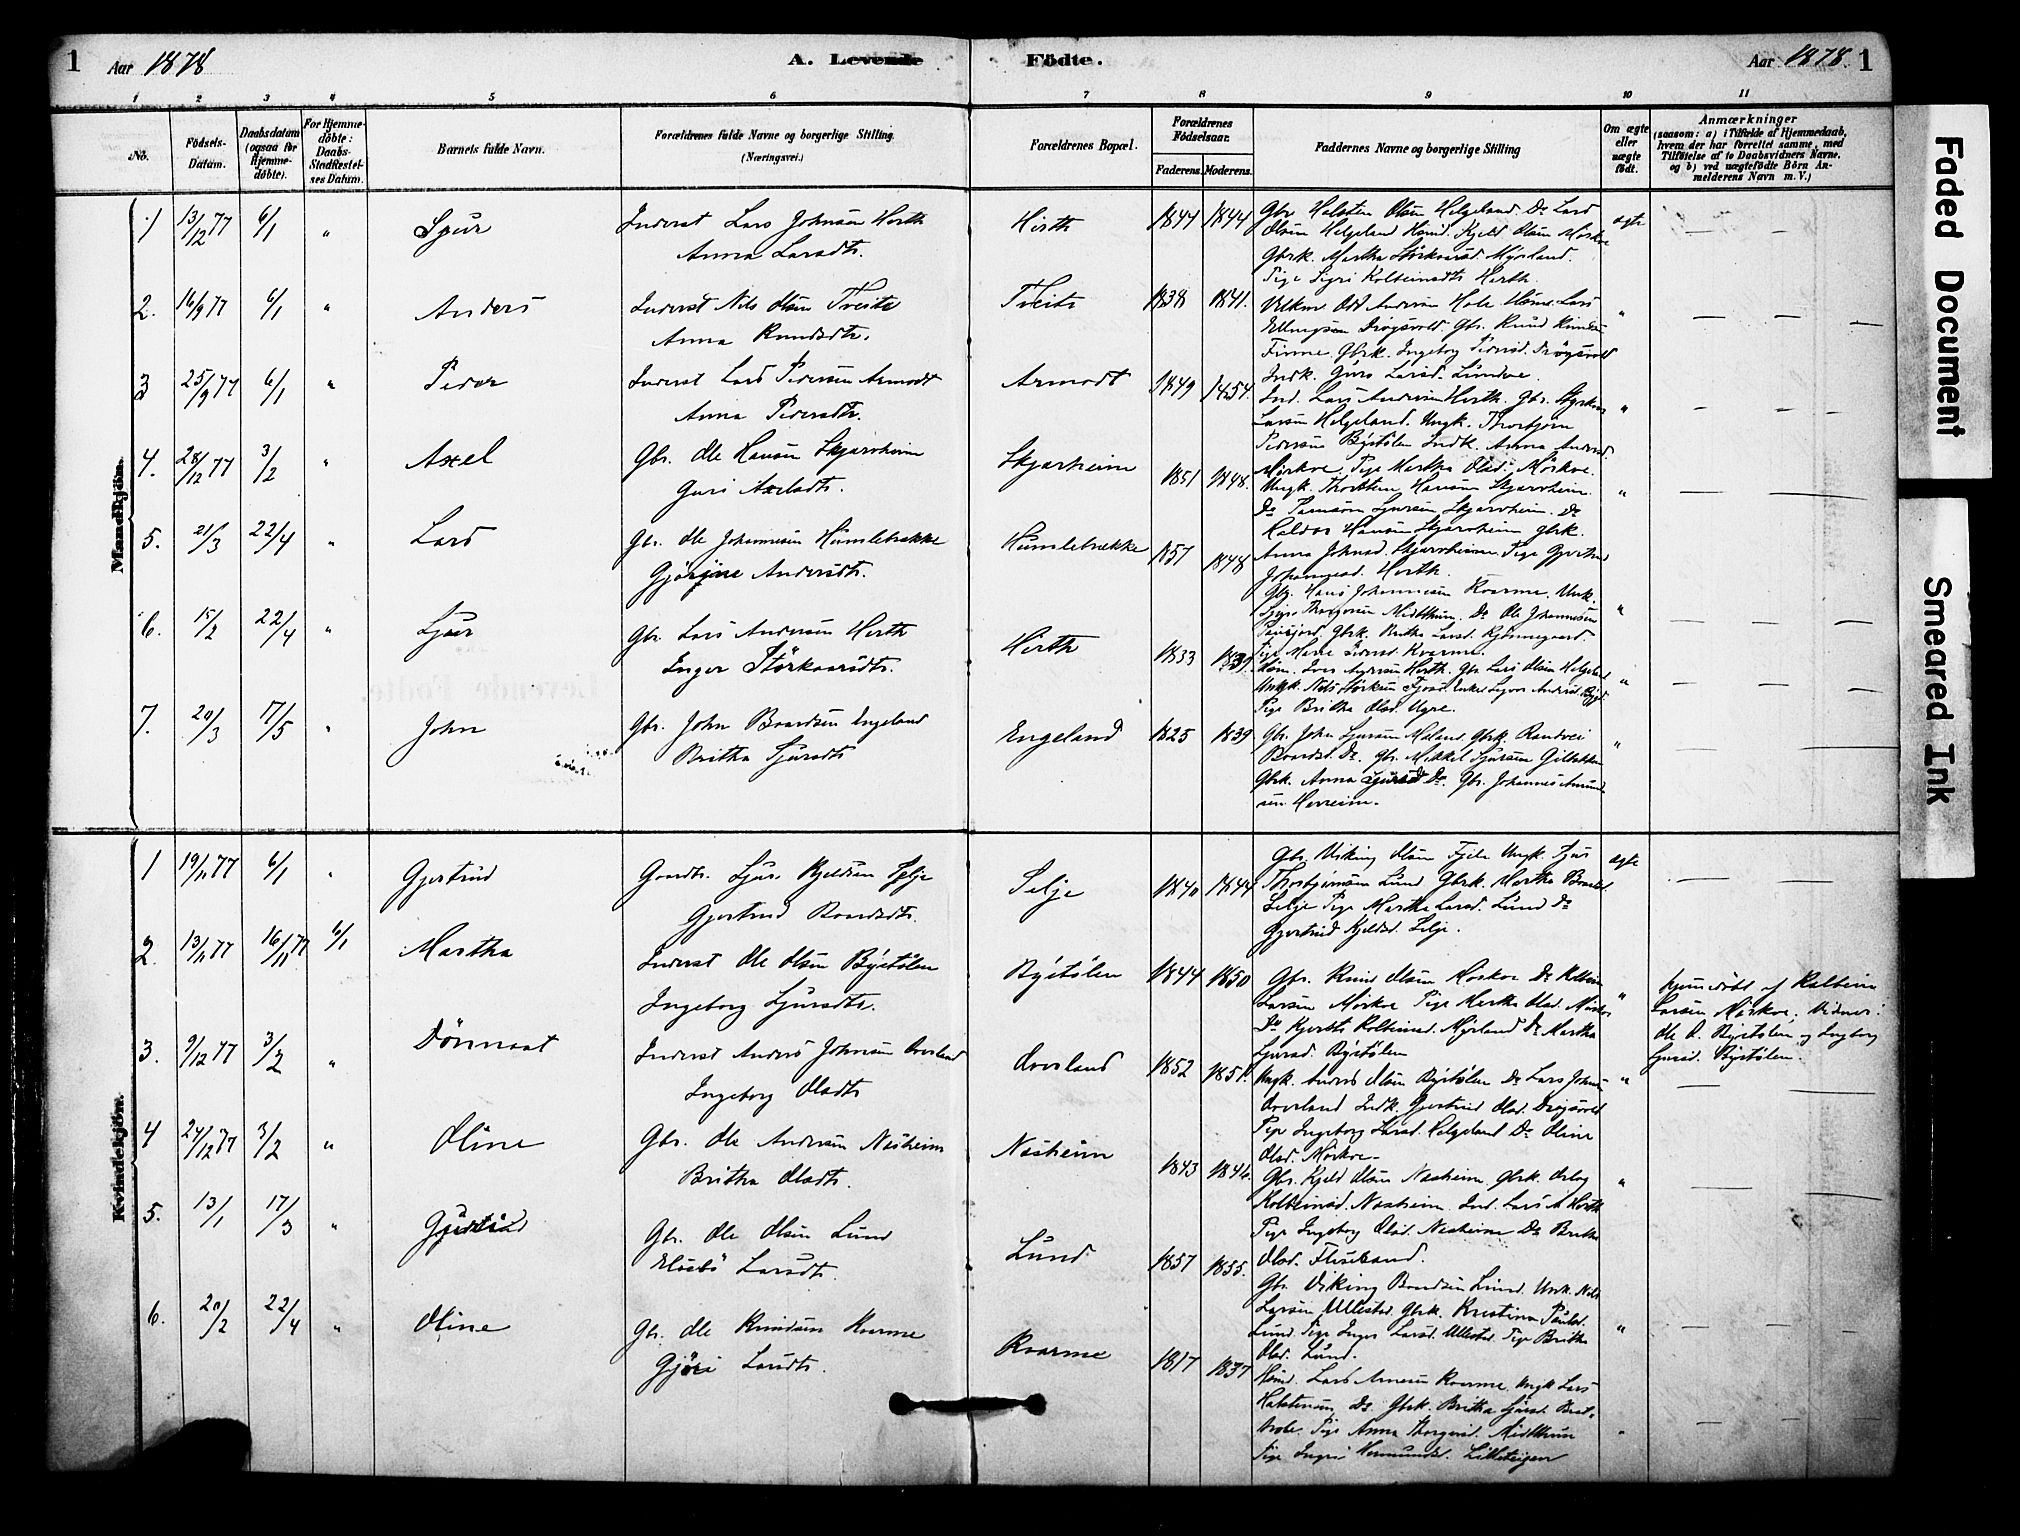 1 Aar 1878 A. Levende Födte. Aar 1878. 1
1 2 3 4 5 6 7 8 9 10 11
No.
Födsels-
Datum.
Daabsdatum
(ogsaa for
Hjemme-
döbte).
For Hjemme-
döbte:
Daabs-
Stadfæstel-
ses Datum.
Barnets fulde Navn.
Forældrenes fulde Navne og borgerlige Stilling.
(Næringsvei.)
Forældrenes Bopæl.
Forældrenes
Födselsaar.
Faderens. Moderens.
Faddernes Navne og borgerlige Stilling
Om ægte
eller
uægte
födt.
Anmærkninger
(saasom: a) i Tilfælde af Hjemmedaab,
hvem der har forrettet samme, med
Tilföielse af to Daabsvidners Navne.
og b) ved uægtefödte Börn An-
melderens Navn m. V.)
Mandkjön.
1 13/12 77 6/1 " Sjur
Inderst Lars Johnsen Herth
Anna Larsdtr.
Herth 1844 1844
Gbr Halsten Olsen Helgeland. Do Lars
Olsen Helgeland Kjeld Olsen Mörkve
Gbrk. Martha Störkaarsd Myrland.
Pige Sigri Kolbeinsdtr Herth.
ægte
2. 16/9 77 6/1 " Anders
Inderst Nils Olsen Tveite
Anna Knudsdtr.
Tveite 1838 1841.
Odd Andersen Hole Lars
Ellingsen Drögsvold. Gbr. Knud
Finne. Gbrk. Ingeborg Pedersd. Drögsvold
Indk. Guro Larsd. Lundve.
"
3 25/9 77 6/1 " Peder
Inderst Lars Pedersen Armodt
Anna Pedersdtr.
Armodt 1849 1854.
Ind. Lars Andersen Herth. Gbr. Styrkaar
Larsen Helgeland. Ungk. Thorbjörn
Pedersen Böstölen Indk. Anna Andersd.
Mörkve. Pige Martha Olsd. Mörkve.
"
4. 28/12 77 3/2 " Axel
Gbr. Ole Hansen Skjervheim
Guri Axelsdtr.
Skjerheim 1851 1848.
Ungk. Thorstein Hansen Skjervheim.
Do Samson Sjursen Skjervheim. Do
Haldor Hansen Skjervheim gbrk.
Anna Johnsd. Skjervheim. Pige Gjertrud
Johannesd. Herth.
"
5. 21/3 22/4 " Lars
Gbr. Ole Johannesen Humlebrække
Gjörine Andersdtr.
Humlebrække 1857 1848
Gbr. Hans Johannesen Kvarme. Unk.
Midtthun. Do Ole Johannesen
Gbrk. Britha Larsd.
Pige Marie Pedersd. Kvarme.
"
6. 15/2 22/4 " Sjur
Gbr. Lars Andersen Herth
Inger Störkaarsdtr.
Herth 1833 1839
Iver Andersen Herth. Gbr Lars Olsen Helgeland
Ungk. Nils Störksen
Pige Britha Olsd. Ugre.
"
7. 20/3 17/5 " John
Gbr. John Baardsen Engeland
Britha Sjursdtr
Engeland 1825 1839
Gbr. John Sjursen Maland. Gbrk. Randvei
Baardsd. Do. Gbr. Mikkel Sjursen Gilbakken
Gbrk. Anna Sjursd Do. Gbr. Johannes Amund-
sen Herreim.
"
Kvindekjön.
1 19/11 77 6/1 " Gjertrud
Gaardbr. Sjur Kjeldsen Selje
Gjertrud Baardsdtr.
Selje 1840 1844
Gbr. Viking Olsen Fjele Ungk. Sjur
Thorbjörnsen Lund Gbrk. Martha Baardsd
Selje Pige Martha Larsd. Lund Do
Gjertrud Kjeldsd. Selje.
ægte
2. 13/11 77 16/11 77 6/1 Martha
Inderst Ole Olsen Böstölen
Ingeborg Sjursdtr.
Böstölen 1844 1850
Gbr. Knud Olsen Mörkve Do Kolbein
Larsen Mörkve Pige Martha Olsd. Mörkve
Do Kjersti Kolbeinsd. Myrland Do Martha
Sjursd. Böstölen
"
Hjemmedöbt af Kolbein
Larsen Mörkve, Vidner:
Ole O. Böstölen og Ingborg
Sjursd. Böstölen.
3. 9/12 77 3/2 " Dönnaat
Inderst Anders Johnsen Overland
Ingeborg Olsdtr
Overland 1852 1851.
Ungk. Anders Olsen Böstölen Do Lars Johns.
Overland Indk. Gjertrud Olsd. Drögsvold
Pige Ingeborg Larsd. Helgeland Do Oline
Olsd. Mörkve.
"
4 24/12 77 3/2 " Oline
Gbr. Ole Andersen Næsheim
Britha Olsdtr.
Næsheim 1843 1846.
Gbr. Kjeld Olsen Næsheim. Gbrk.
Kolbeinsd. Næsheim. Ind. Lars A Herth
Pige Ingeborg Olsd. Næsheim Do Britha
Olsd. Flisestrand.
"
5. 13/1 17/3 " Gjertrud
Gbr. Ole Olsen Lund
Larsdtr.
Lund 1857 1855.
Gbr. Viking Baardsen Lund. Unk. Nils
Larsen Ullestad. Gbrk. Kristina Paulsd.
Lund. Pige Inger Larsd. Ullestad. Pige Britha
Olsd. Lund.
"
6. 20/2 22/4 " Oline
Gbr. Ole Knudsen Kvarme
Gjöri Larsdtr.
Kvarme 1817 1837
Lars Arnesen Kvarme. Ungk Lars
Halstensen Do. Gbrk. Britha
Pige Anna Midtthun
Pige Ingri Hermundsd. Lilleteigen
Faded Document
Smeared Ink